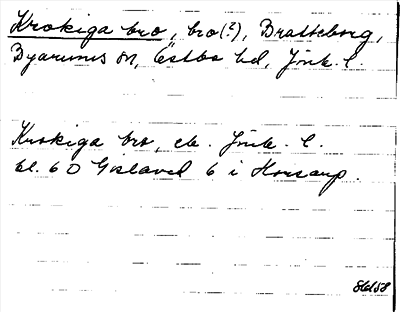 Krokiga bro, bro(?), Bratteborg,
Byarums sn, Östbo hd, Jönk. l.
Krokiga bro, eb. Jönk. l.
bl. 6 O Gislaved 6 i Horsarp.
86158